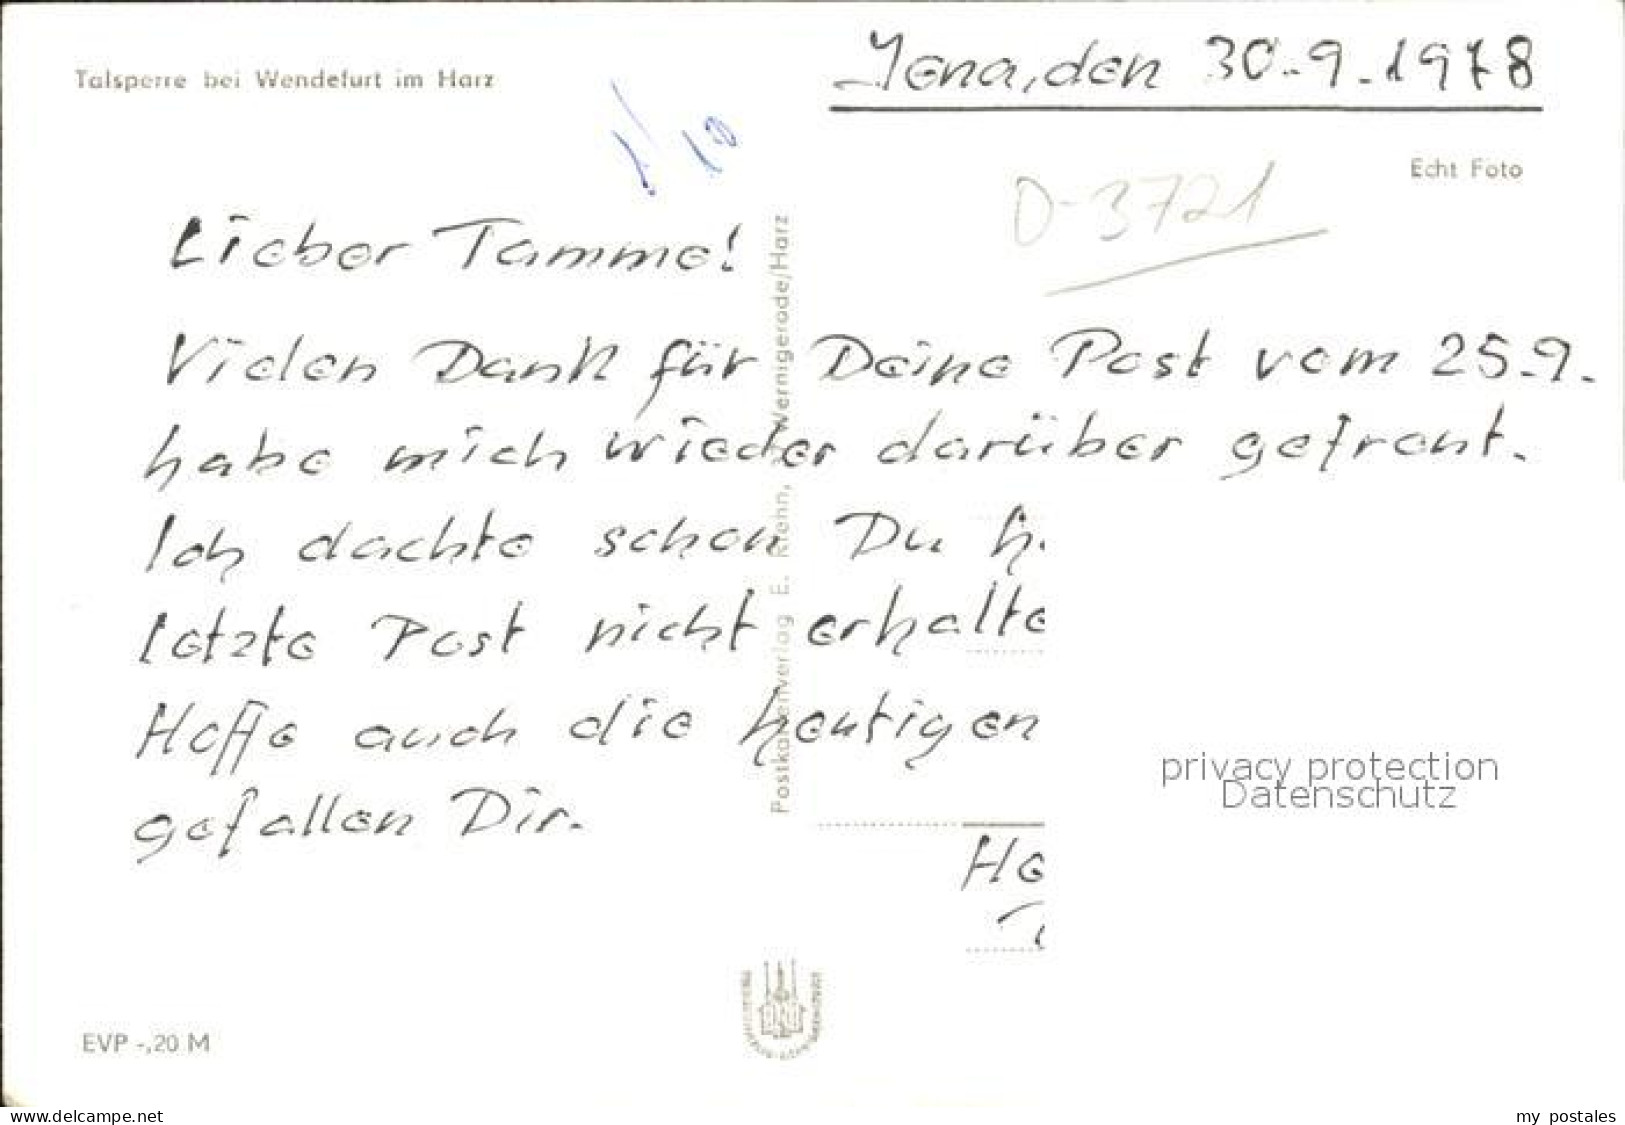 Talsperre bei Wendefurt im Harz
Jena, den 30.9.1978
Echt Foto
1/10
D-3721
Lieber Tamme!
Vielen Dank für Deine Post vom 25.9.
habe mich wieder darüber gefreut.
Ich dachte schon Du h
letzte Post nicht erhalte
Hoffe auch die heutigen
gefallen Dir.
Postkartenverlag E. Riehn, Wernigerode/Harz
privacy protection
Datenschutz
EVP -,20 M
www.delcampe.net
my postales